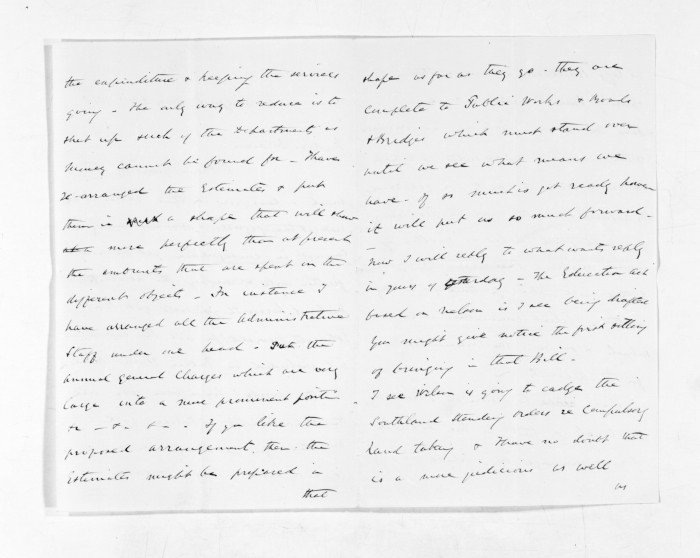 the expenditure & keeping the services
going - The only way to reduce is to
shut up such of the Departments as
money cannot be found for - I have
re-arranged the Estimates & put
them in a shape that will show
a more perfectly than at present
the amounts that are spent on the
different objects - For instance I
have arranged all the Administrative
Staff under one head - the
annual general charges which are very
large into a more prominent position
&c - &c - &c - If you like the
proposed arrangement, then the
Estimates might be prepared in
that
shape as far as they go - they are
complete to Public Works & Roads
& Bridges which must stand over
until we see what means we
have - If so much is got ready however
it will put us so much forward -
Now I will reply to what wants reply
in yours of yesterday - The Education Act
based on Nelson is I see being drafted
You might give notice the first sitting
of bringing in that Bill -
I see is going to the
Southland Standing orders re Compulsory
Land taking & I have no doubt that
is a more judicious as well
as